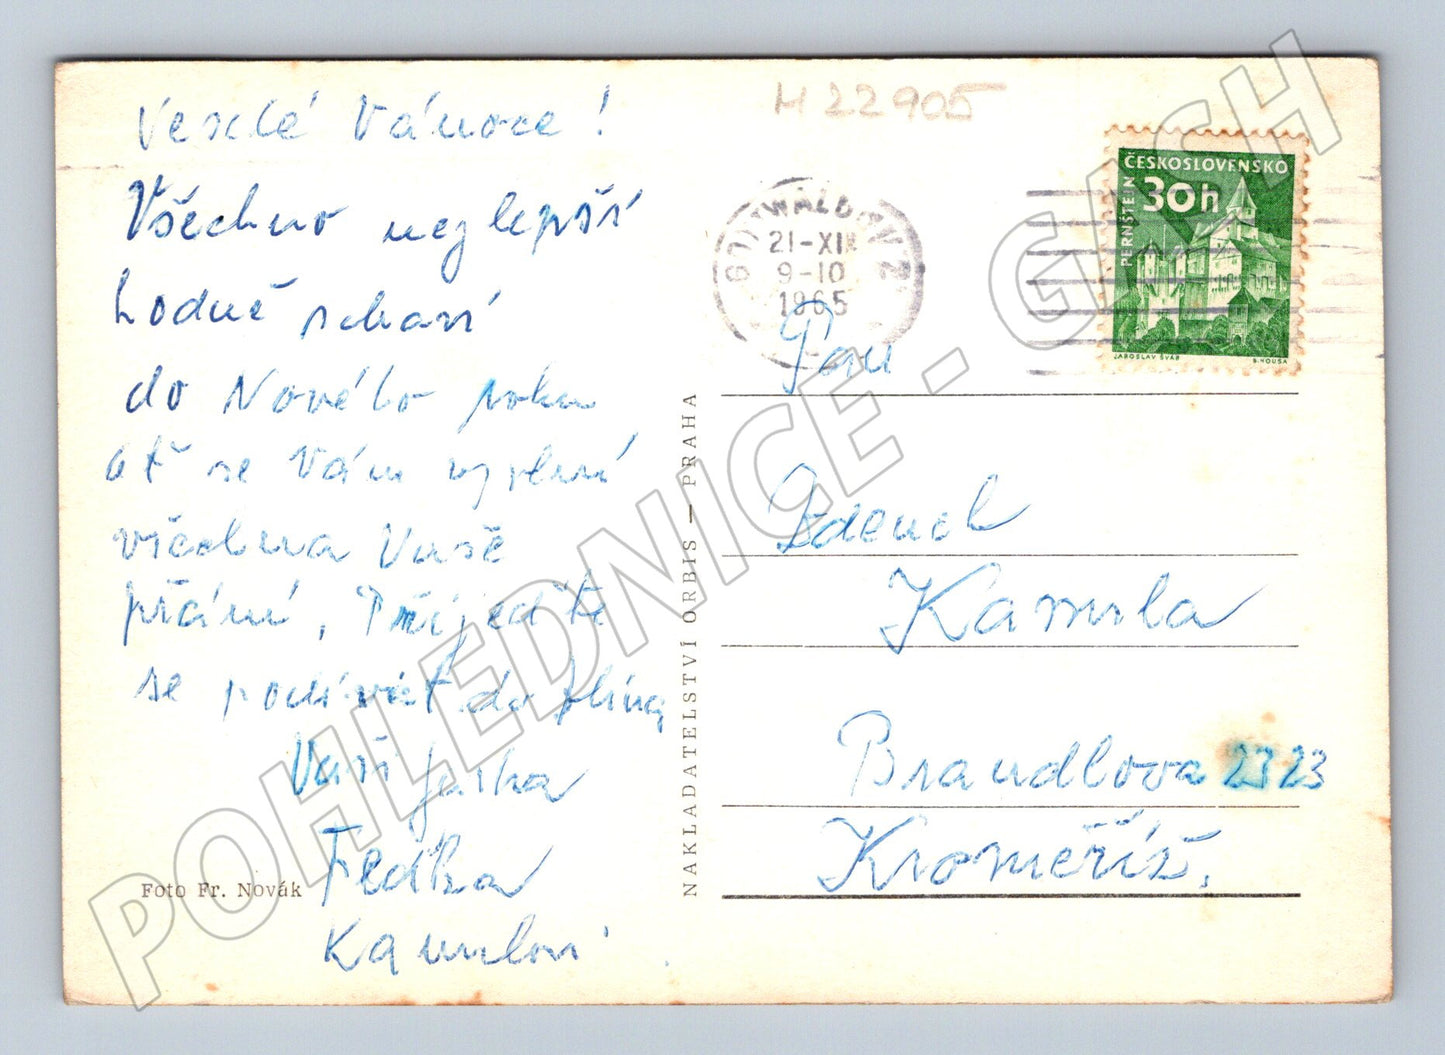 Veselé Vánoce!
Všechno nejlepší
hodně zdraví
do Nového roku
ať se Vám vyplní
všechna Vaše
přání, Přijeďte
se podívat do Zlína
Vaši Jarka
Fedka
Kamilovi
Foto Fr. Novák
NAKLADATELSTVÍ ORBIS — PRAHA
H 22905
GOTTWALDOV 2
21-XII
9-10
1965
ČESKOSLOVENSKO
30h
PERNŠTEJN
JAROSLAV ŠVÁB
B. HOUSA
Pan
Zdeněk
Kamila
Brandlova 2323
Kroměříž,
POHLEDNICE - GASH